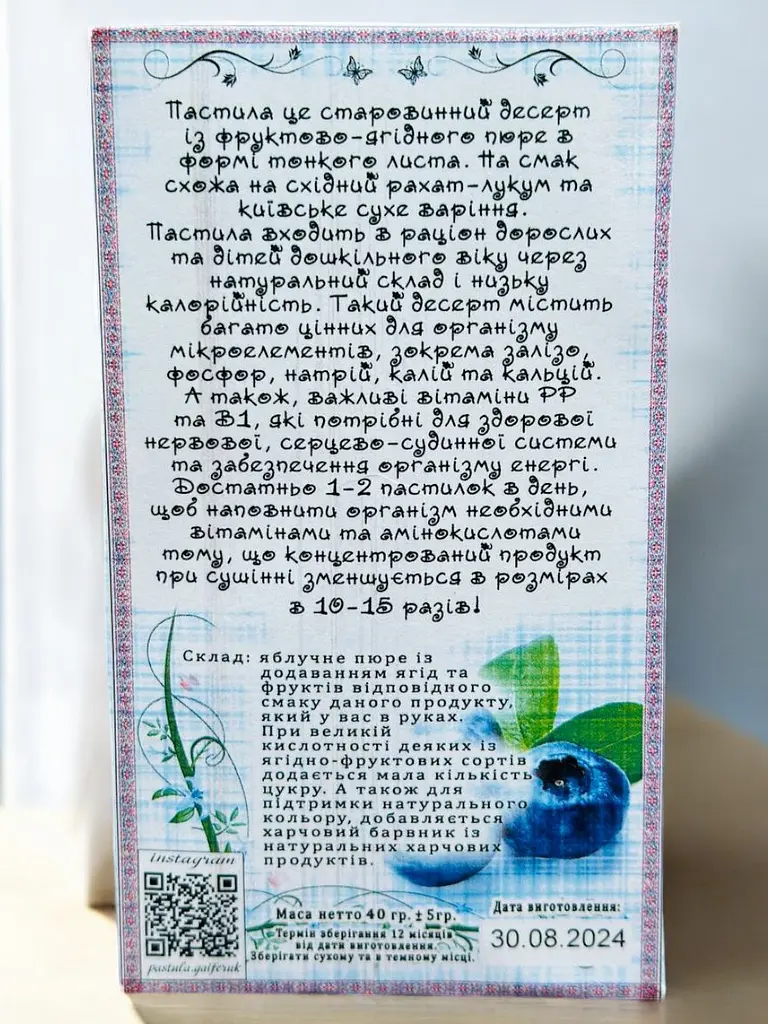 Пастила це старовинний десерт
із фруктово-ягідного пюре в
формі тонкого листа. На смак
схожа на східний рахат-лукум та
київське сухе варіння.
Пастила входить в раціон дорослих
та дітей дошкільного віку через
натуральний склад і низьку
калорійність. Такий десерт містить
багато цінних для організму
мікроелементів, зокрема залізо,
фосфор, натрій, калій та кальцій.
А також, важливі вітаміни РР
та В1, які потрібні для здорової
нервової, серцево-судинної системи
та забезпечення організму енергі.
Достатньо 1-2 пастилок в день,
щоб наповнити організм необхідними
вітамінами та амінокислотами
тому, що концентрований продукт
при сушінні зменшується в розмірах
в 10-15 разів!
Склад: яблучне пюре із
додаванням ягід та
фруктів відповідного
смаку даного продукту,
який у вас в руках.
При великій
кислотності деяких із
ягідно-фруктових сортів
додається мала кількість
цукру. А також для
підтримки натурального
кольору, добавляється
харчовий барвник із
натуральних харчових
продуктів.
instagram
pastula.gaiferuk
Маса нетто 40 гр. ± 5гр.
Термін зберігання 12 місяців
від дати виготовлення.
Зберігати сухому та в темному місці.
Дата виготовлення:
30.08.2024